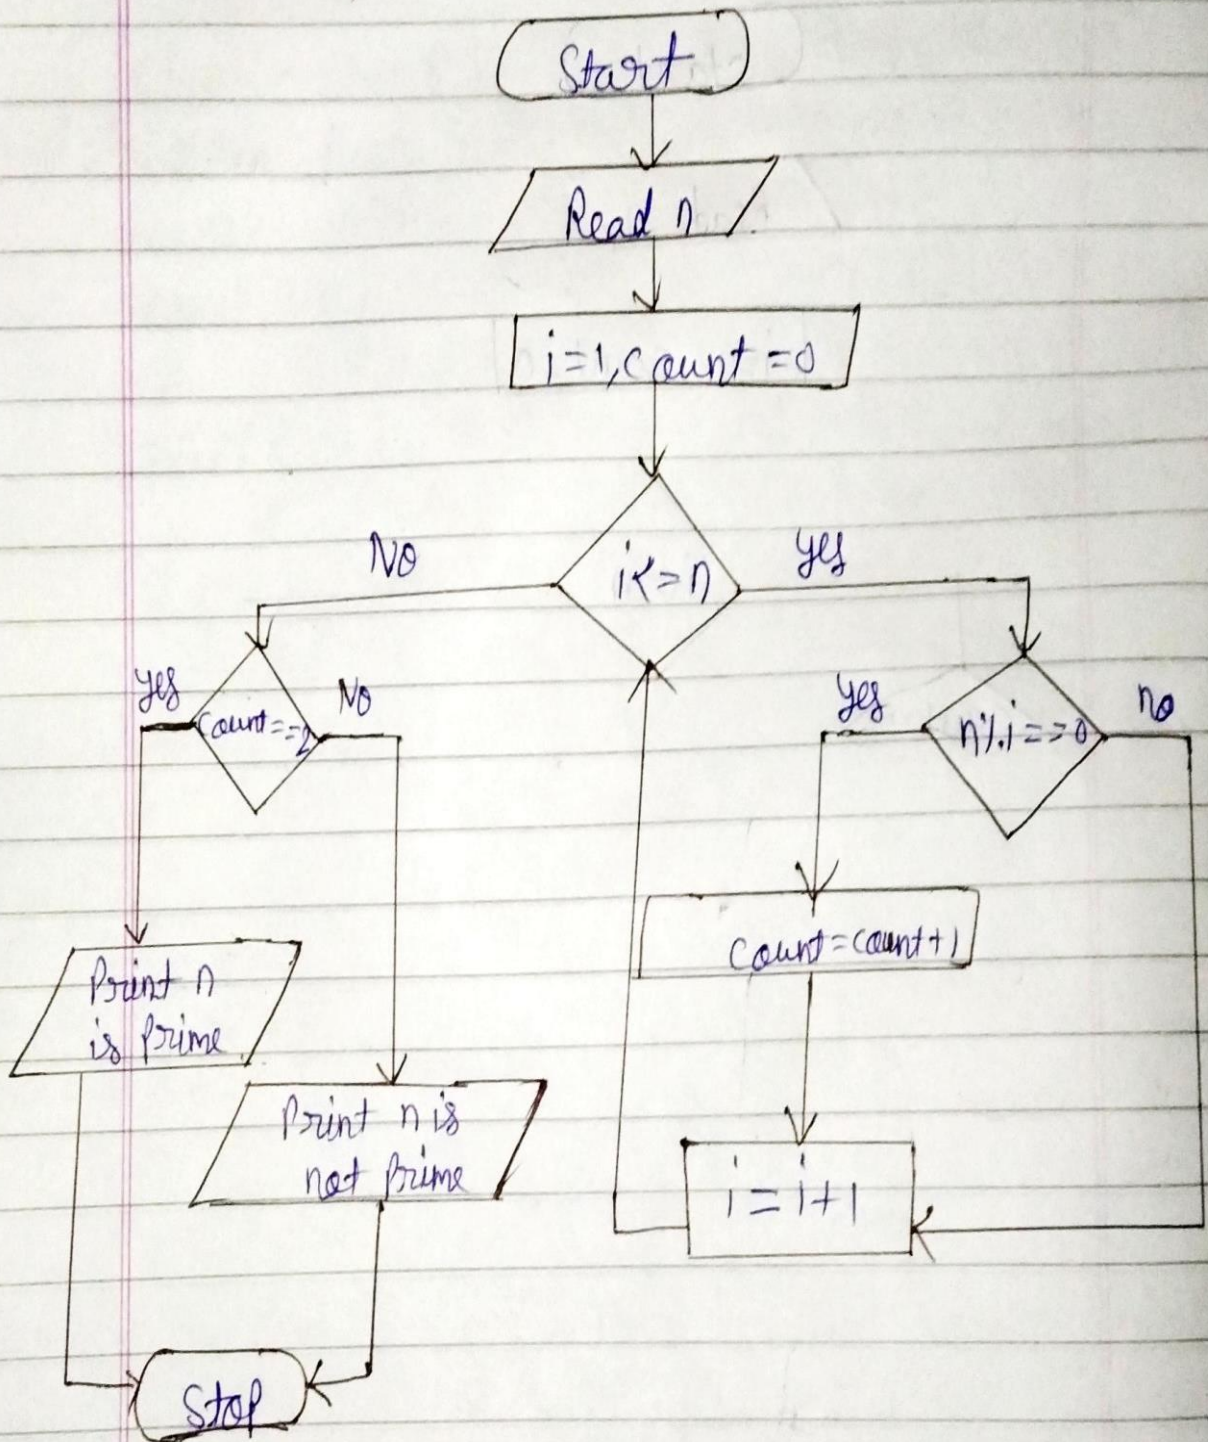 Start
Read n
i=1, count=0
i<=n
No
yes
yes
count==2
No
yes
n%i==0
no
count=count+1
Print n
is prime
Print n is
not prime
i=i+1
Stop